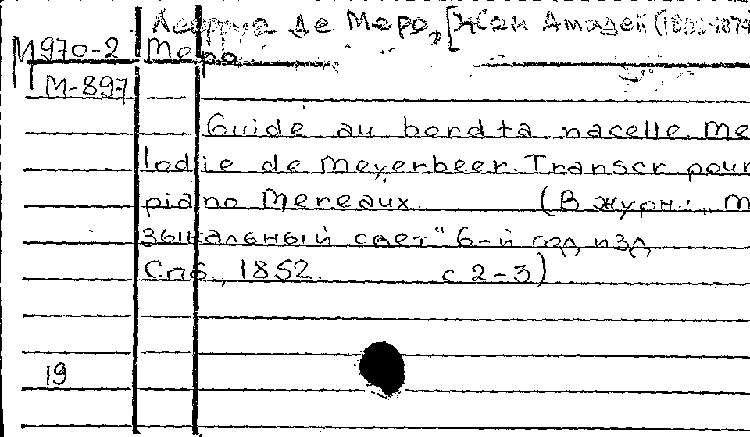 Лефруа де Меро, [Жан Амадей (1802-1874
М 970-2 Меро
М-897
Guide au bord ta nacelle. Me
lodie de Meyerbeer. Transcr pour
piano Mereaux. (В журн.: „М
зыкальный свет" 6-й год изд
Спб., 1852. с 2-3)
19